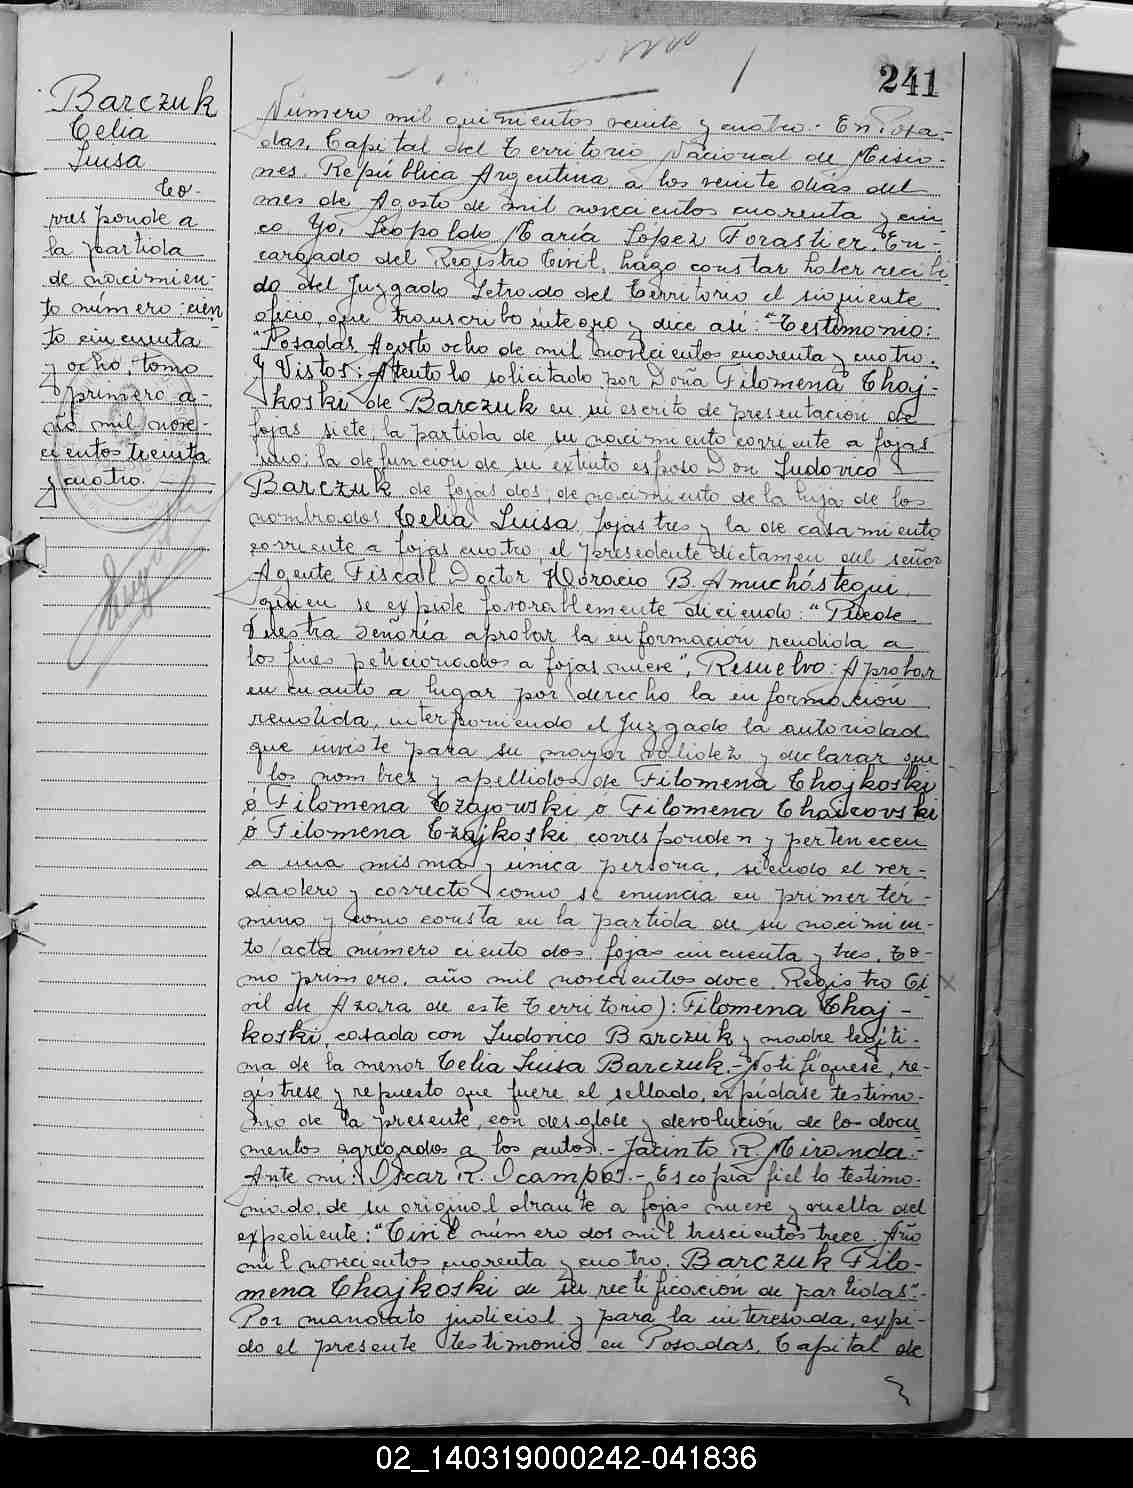 241
Barczuk
Celia
Luisa
Co-
rresponde a
la partida
de nacimien-
to número: cien
to cincuenta
y ocho, tomo
primero a-
ño mil nove-
cientos treinta
y cuatro.
Número mil quinientos veinte y cuatro. En Posa-
das, Capital del Territorio Nacional de Misio-
nes, República Argentina, a los veinte dias del
mes de Agosto de mil novecientos cuarenta y cin
co Yo, Leopoldo María López Forastier, En-
cargado del Registro Civil, hago constar haber recibi
do del Juzgado Letrado del Territorio el siguiente
oficio, que transcribo integro y dice así: "Testimonio:
"Posadas, Agosto ocho de mil novecientos cuarenta y cuatro.
Y Vistos: Atento lo solicitado por Doña Filomena Choj-
koski de Barczuk en su escrito de presentación de
fojas siete, la partida de su nacimiento corriente a fojas
uno; la defunción de su extinto esposo Don Ludovico
Barczuk de fojas dos; de nacimiento de la hija de los
nombrados Celia Luisa, fojas tres y la de casamiento
corriente a fojas cuatro; el precedente dictamen del señor
Agente Fiscal Doctor Horacio B. Amuchástegui,
quien se expide favorablemente diciendo: "Puede
Vuestra Señoría aprobar la información rendida a
los fines peticionados a fojas nueve", Resuelvo: Aprobar
en cuanto a lugar por derecho la información
rendida, interponiendo el Juzgado la autoridad
que inviste para su mayor validez y declarar que
los nombres y apellidos de Filomena Chojkoski
ó Filomena Czajowski o Filomena Chaicovski
ó Filomena Czajkoski, corresponden y pertenecen
a una misma y única persona, siendo el ver-
dadero y correcto como se enuncia en primer tér-
mino y como consta en la partida de su nacimien-
to (acta número ciento dos, fojas cincuenta y tres, to-
mo primero, año mil novecientos doce, Registro Ci-
vil de Azara de este Territorio): Filomena Choj-
koski, casada con Ludovico Barczuk y madre legíti-
ma de la menor Celia Luisa Barczuk.- Notifíquese, re-
gistrese y repuesto que fuere el sellado, expídase testimo-
nio de la presente, con desglose y devolución de los docu
mentos agregados a los autos.- Jacinto R. Miranda.-
Ante mí: Oscar R. Ocampo".- Es copia fiel lo testimo-
niado, de su original obrante a fojas nueve y vuelta del
expediente: "Civil número dos mil trescientos trece. Año
mil novecientos cuarenta y cuatro. Barczuk Filo-
mena Chojkoski de su rectificación de partidas".-
Por mandato judicial y para la interesada, expi-
do el presente testimonio en Posadas, Capital de
02_140319000242-041836